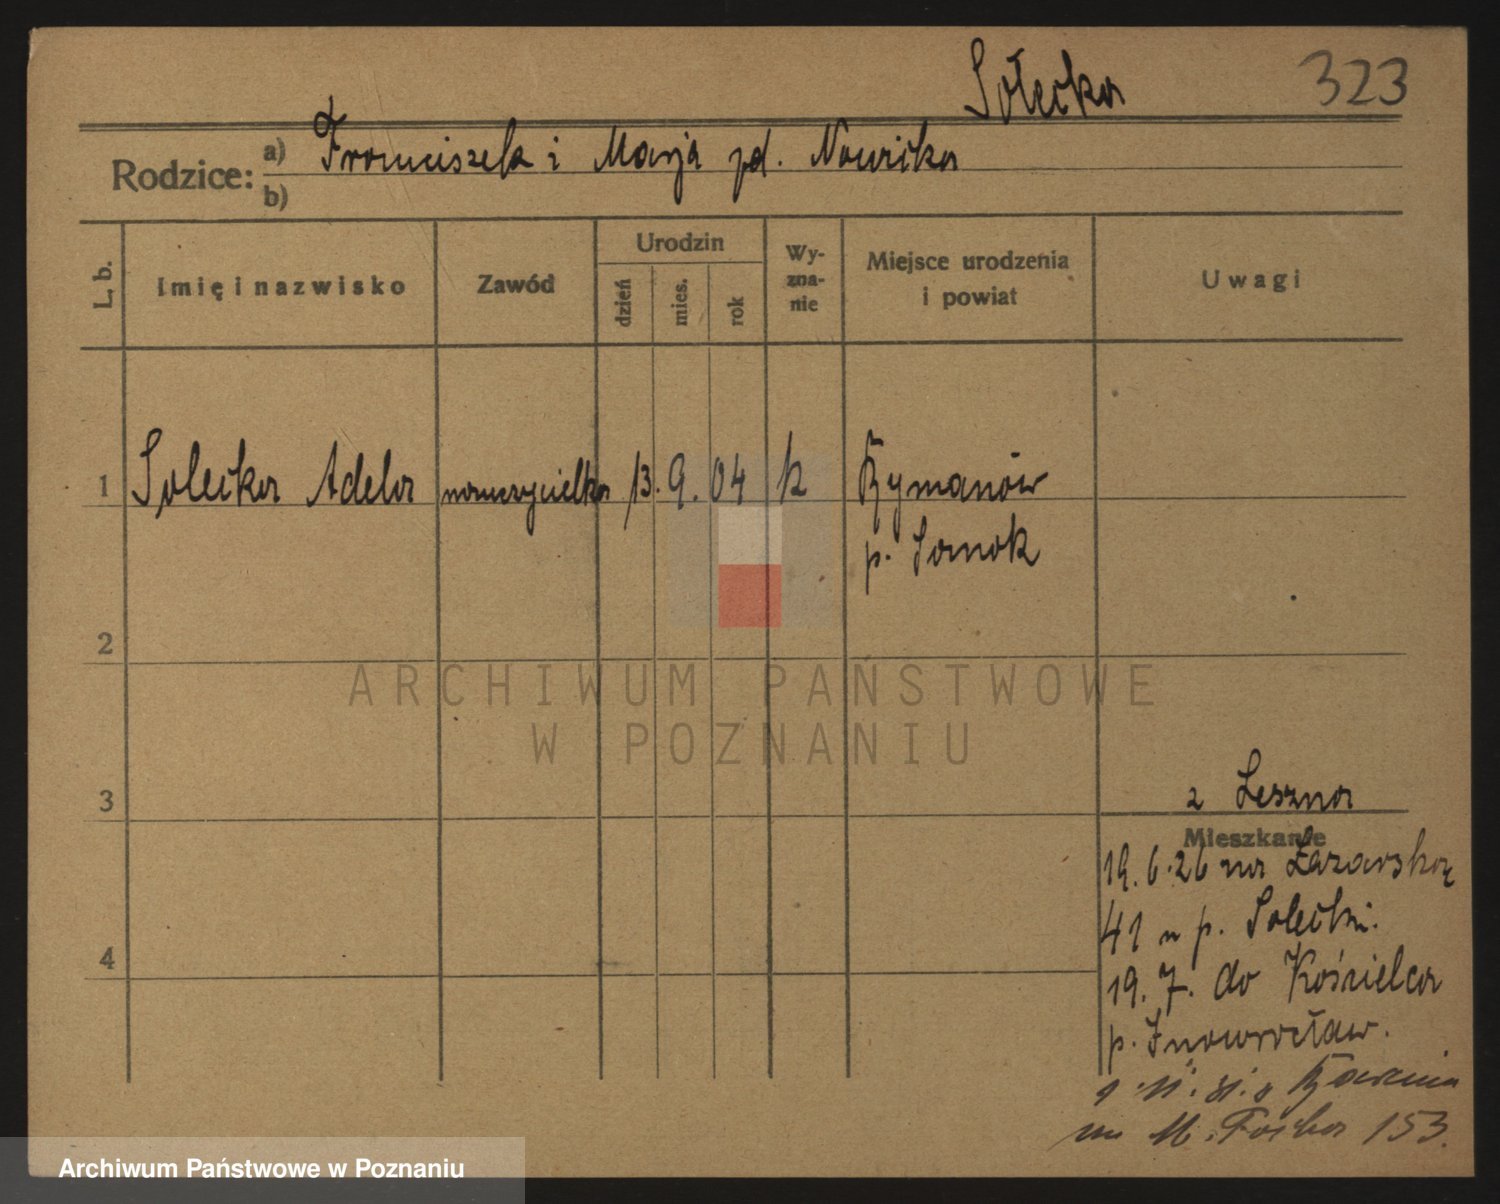 Sołecka 323
Rodzice: a) Franciszek i Marja zd. Nowicka
b)
L. b. Imię i nazwisko Zawód Urodzin dzień mies. rok Wy-zna-nie Miejsce urodzenia i powiat Uwagi
1 Solecka Adela nauczycielka 13. 9. 04 k Rymanów
p. Sanok
2
ARCHIWUM PAŃSTWOWE
W POZNANIU
3
z Leszna
Mieszkanie
19.6.26 na Łazarską
41 u p. Solecki.
4
19. 7. do Kościelca
p. Inowrocław.
31. z
M. Focha 153.
Archiwum Państwowe w Poznaniu